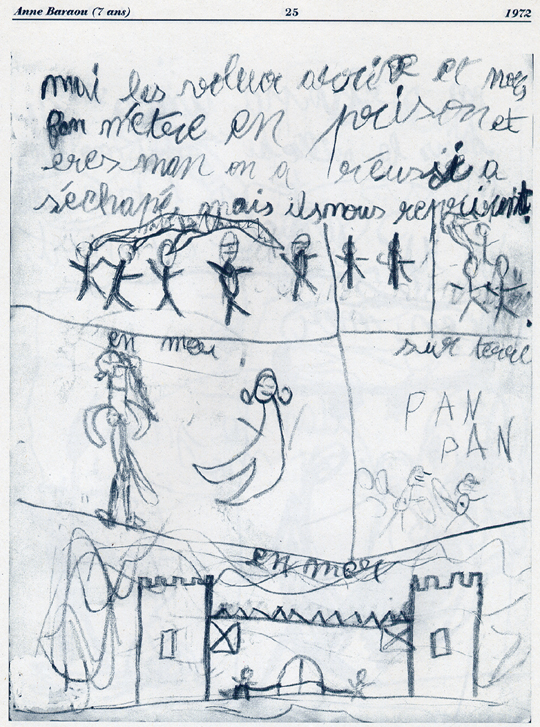 Anne Baraou (7 ans) 25 1972
mai les voleur et nous
en prison et
on a réusi a
séchapé mais ils nous reprirent
en mer sur terre
PAN
PAN
en mer